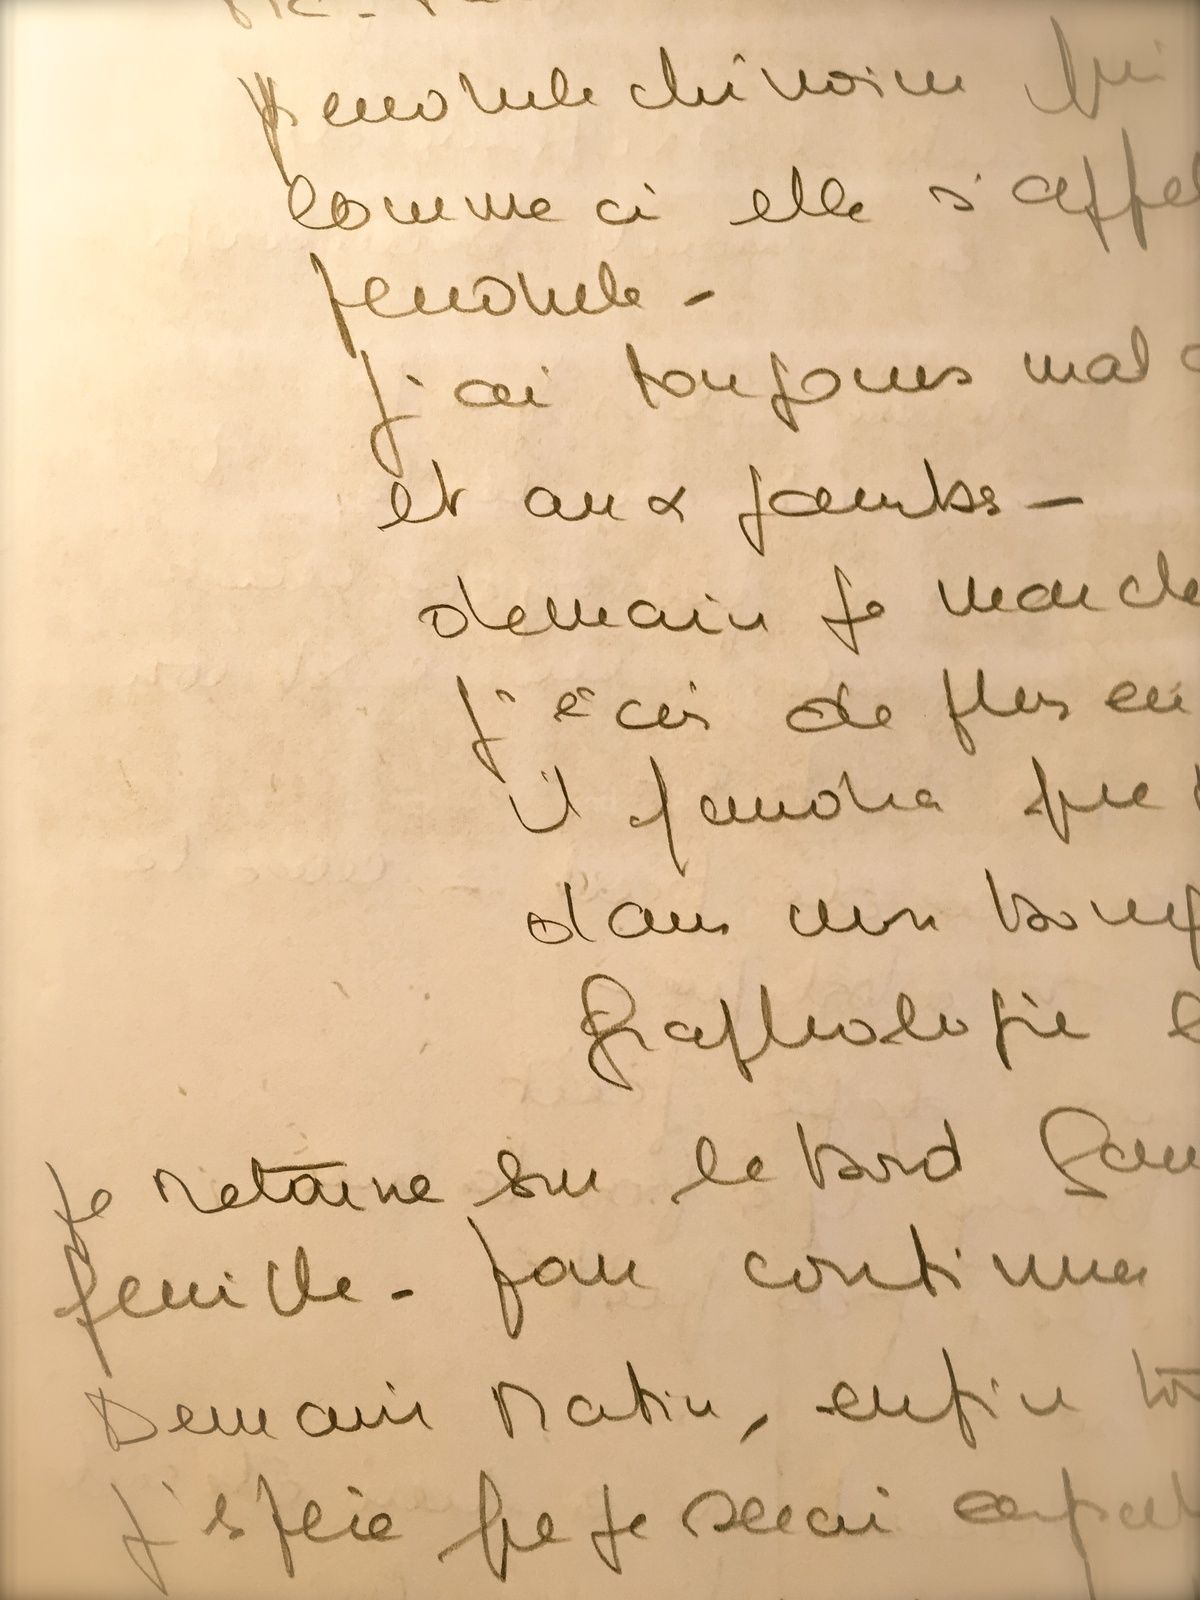 pendule chinoise qui
comme ci elle s'appel
pendule -
j'ai toujours mal
et aux jambes -
demain je marche
j'écris de plus en
il faudra que
dans mon bouq
Graphologie
Je retourne sur le bord Gau
feuille - pour continuer
Demain Matin, enfin
j'espère que je serai capab